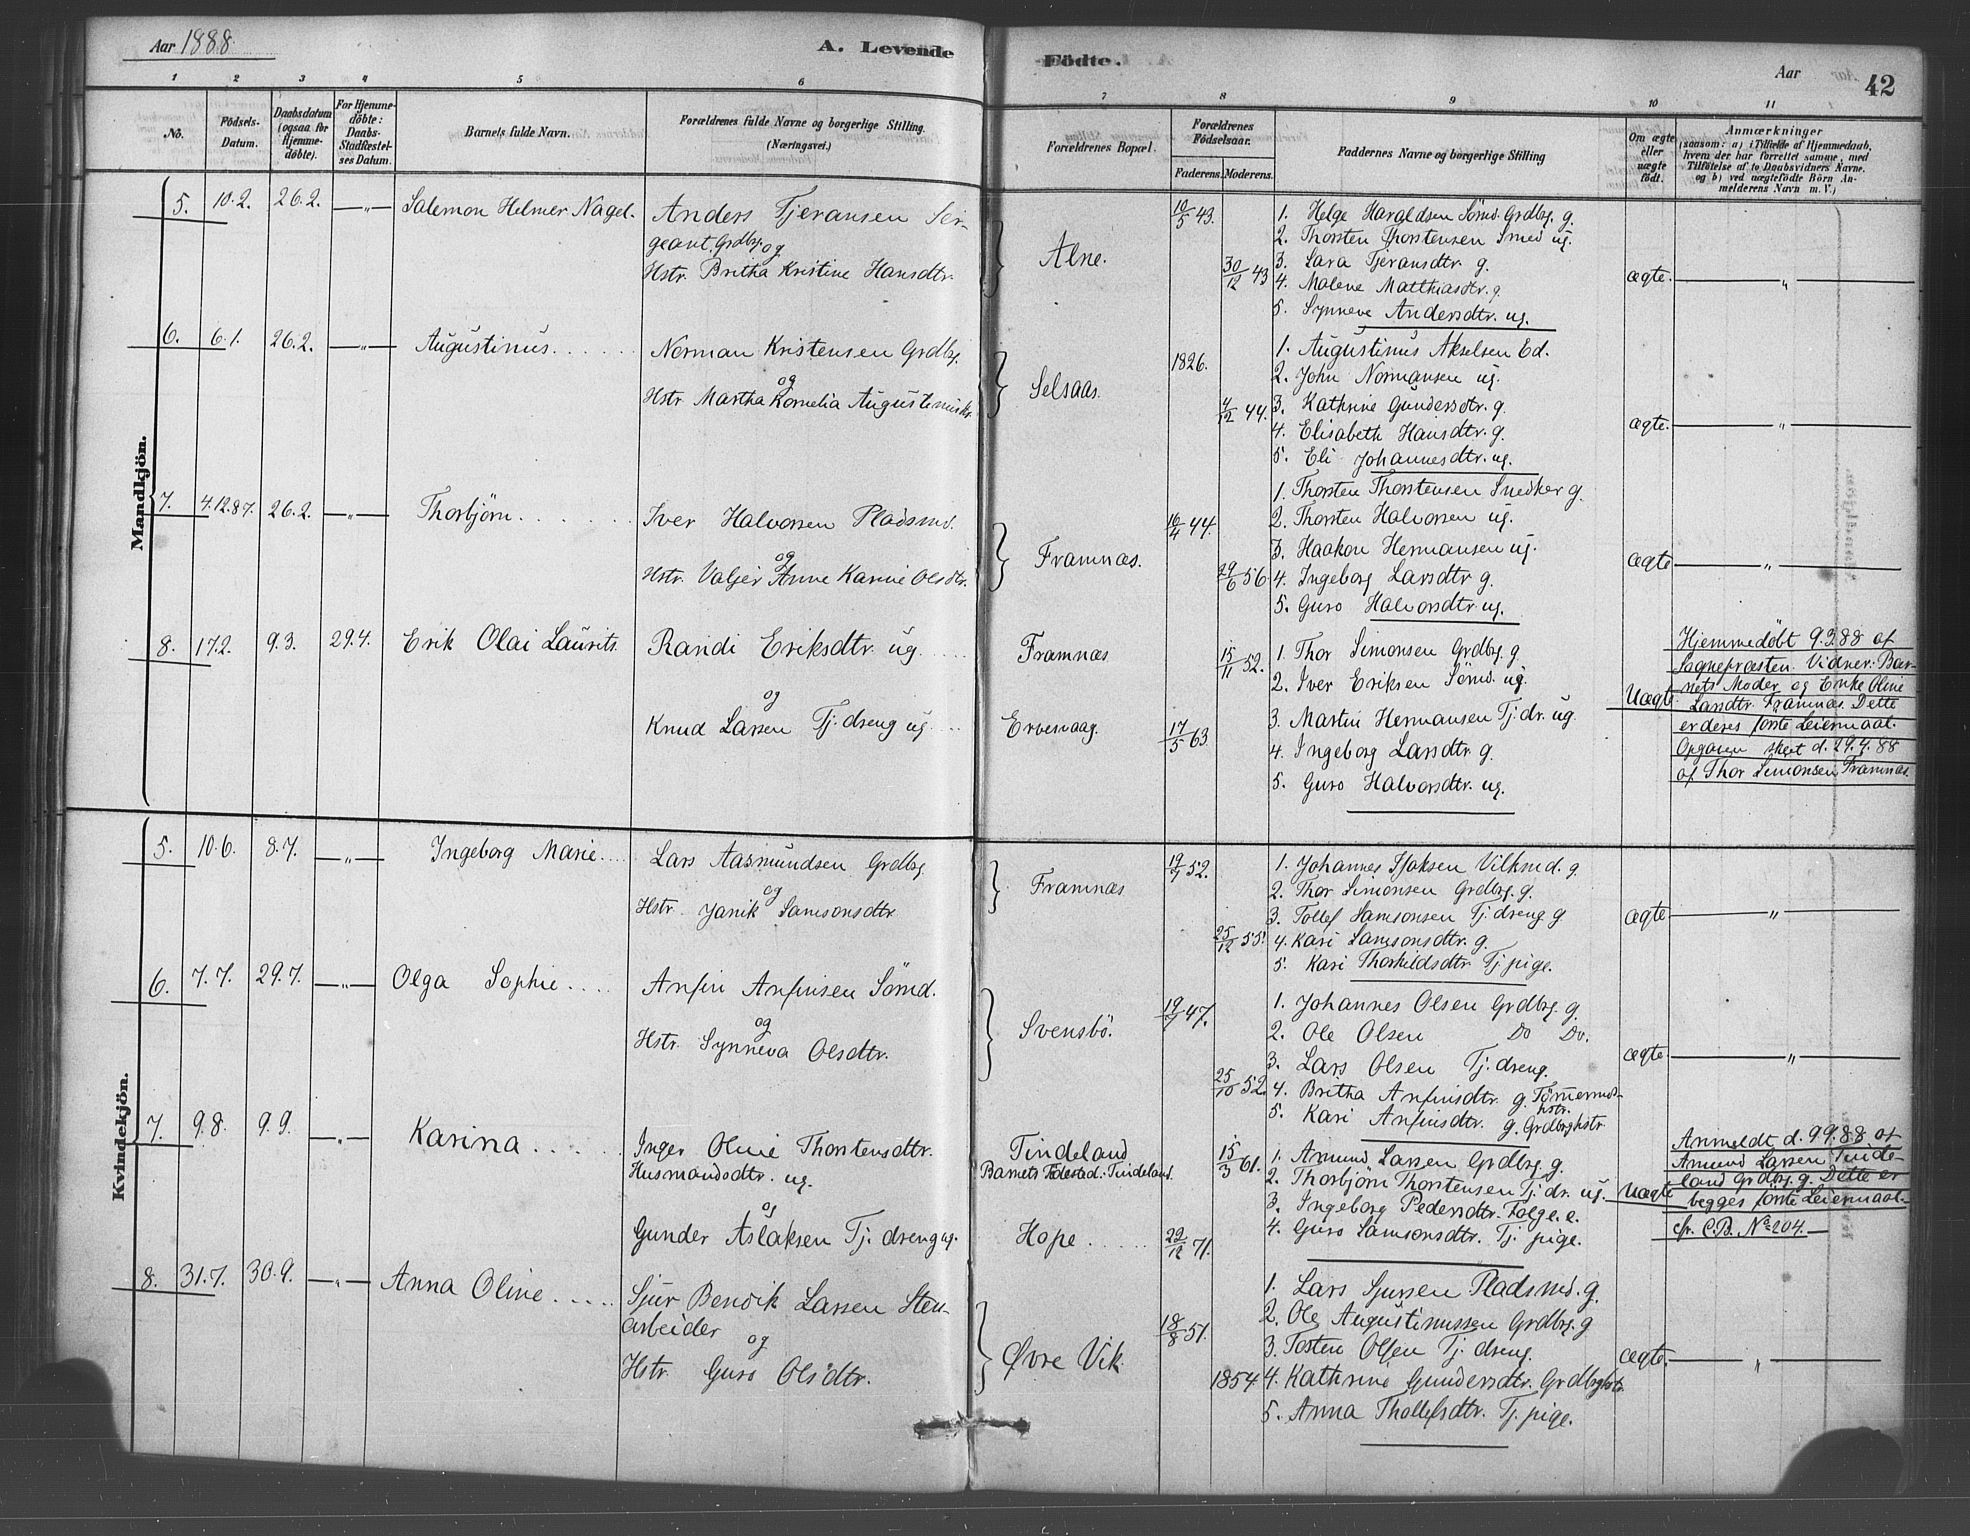 Aar 1888.
A. Levende
Födte.
Aar
42
1 2 3 4 5 6
7 8 9 10 11
No.
Födsels-
Datum.
Daabsdatum
(ogsaa for
Hjemme-
döbte).
For Hjemme-
döbte:
Daabs-
Stadfæstel-
ses Datum.
Barnets fulde Navn.
Forældrenes fulde Navne og borgerlige Stilling.
(Næringsvei.)
Forældrenes Bopæl.
Forældrenes
Födselsaar.
Faderens. Moderens.
Faddernes Navne og borgerlige Stilling
Om ægte
eller
uægte
födt.
Anmærkninger
(saasom: a) i Tilfælde af Hjemmedaab,
hvem der har forrettet samme, med
Tilföielse af to Daabsvidners Navne.
og b) ved uægtefödte Börn An-
melderens Navn m. V.)
Mandkjön.
5. 10.2. 26.2. —„— Salemon Helmer Nagel.
Anders Tjeransen Ser-
geant, Grdbr. og
Hstr. Britha Kristine Hansdtr.
Alne.
10/5 43.
30/12 43
1. Helge Haraldsen Sömd. Grdbg. g.
2. Thorsten Thorstensen Smed ug.
3. Lara Tjeransdtr. g.
4. Malene Matthiasdtr. g.
5. Synneve Andersdtr. ug.
ægte. —„—
6. 6.1. 26.2. —„— Augustinus . . . . . .
Norman Kristensen Grdbg.
og
Hstr. Martha Kornelia Augustinusdtr.
Selsaas.
1826.
4/12 44.
1. Augustinus Akselsen Ed.
2. John Normansen ug.
3. Kathrine Gundersdtr. g.
4. Elisabeth Hansdtr. g.
5. Eli Johannesdtr. ug.
ægte. —„—
7. 4.12.87. 26.2. —„— Thorbjörn . . . . . . .
Iver Halvorsen Pladsmd.
og
Hstr. Valjer Anne Karine Olsdtr.
Framnæs.
16/4 44.
29/6 56.
1. Thorsten Thorstensen Snedker g.
2. Thorsten Halvorsen ug.
3. Haakon Hermansen ug.
4. Ingeborg Larsdtr g.
5. Guro Halvorsdtr. ug.
ægte —„—
8. 17.2. 9.3. 29.4. Erik Olai Laurits.
Randi Eriksdtr. ug. . . . .
og
Knud Larsen Tj. dreng ug. . . .
Framnæs
Ervesvaag.
15/11 52.
17/5 63.
1. Thor Simonsen Grdbg. g
2. Iver Eriksen Sömd. ug.
3. Martin Hermansen Tj. dr. ug.
4. Ingeborg Larsdtr. g.
5. Guro Halvorsdtr. ug.
Uægte.
Hjemmedöbt 9.3.88 af
Sognepræsten. Vidner: Bar-
nets Moder og Enke Oline
Larsdtr. Framnæs. Dette
er deres förste Leiermaal.
Opgaven skeet d. 29.4.88
af Thor Simonsen Framnæs.
Kvindekjön.
5. 10.6. 8.7. —„— Ingeborg Marie . . . .
Lars Aasmundsen Grdbg
og
Hstr. Janik Samsonsdtr.
Framnæs
19/7 52.
25/12 55.
1. Johannes Sjoksen Vilksmd. g.
2. Thor Simonsen Grdbg. g.
3. Tollef Samsonsen Tj. dreng g.
4. Kari Samsonsdtr. g.
5. Kari Thorkildsdtr. Tj. pige.
ægte —„—
6. 7.7. 29.7. —„— Olga Sophie . . . .
Anfin Anfinsen Sömd.
og
Hstr. Synneva Olsdtr.
Svensbö.
19/7 47.
25/10 52.
1. Johannes Olsen Grdbg. g.
2. Ole Olsen Do Do.
3. Lars Olsen Tj. dreng.
4. Britha Anfinsdtr. g. Tömermds-
hstr.
5. Kari Anfinsdtr. g. Grdbrghstr
ægte —„—
7. 9.8. 9.9. —„— Karina . . . . . .
Inger Oline Thorstensdtr.
Husmandsdtr. ug.
og
Gunder Aslaksen Tj. dreng ug.
Tindeland
Barnets Födested: Tindeland.
Hope . . . . .
15/3 61.
22/12 71.
1. Amund Larsen Grdbg. g.
2. Thorbjörn Thorstensen Tj. dr. ug.
3. Ingeborg Pedersdtr. Folge. e.
4. Guro Samsonsdtr. Tj. pige.
Uægte
Anmeldt d. 9.9.88 af
Amund Larsen Tinde-
land Grdbg. g. Dette er
begges förste Leiermaal.
cfr. C.B. No. 204.
8. 31.7. 30.9. —„— Anna Oline . . . .
Sjur Bendik Larsen Sten-
arbeider og
Hstr. Guro Olsdtr.
Øvre Vik.
18/8 51.
1854
1. Lars Sjursen Pladsmd. g.
2. Ole Augustinussen Grdbg. g
3. Tosten Olsen Tj. dreng.
4. Kathrine Gundersdtr. Grdbrghstr.
5. Anna Thollefsdtr. Tj. pige.
ægte. —„—